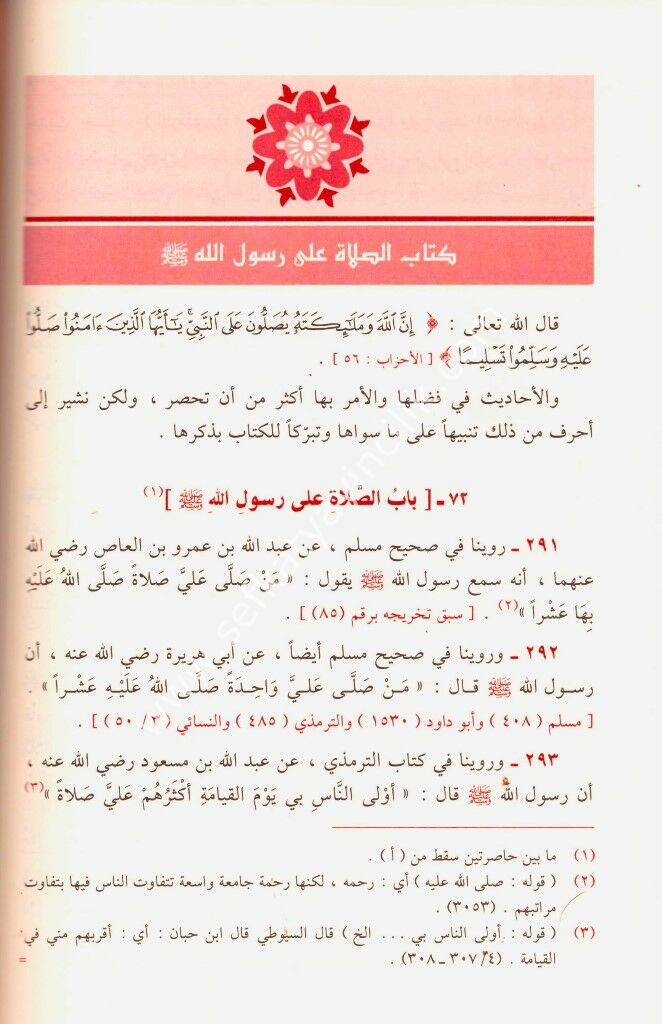 كتاب الصلاة على رسول الله ﷺ
قال الله تعالى : ﴿ إِنَّ اللَّهَ وَمَلَٰٓئِكَتَهُۥ يُصَلُّونَ عَلَى النَّبِيِّ ۚ يَٰٓأَيُّهَا الَّذِينَ ءَامَنُوا۟ صَلُّوا۟
عَلَيْهِ وَسَلِّمُوا۟ تَسْلِيمًا ﴾ [ الأحزاب : ٥٦ ] .
والأحاديث في فضلها والأمر بها أكثر من أن تحصر ، ولكن نشير إلى
أحرف من ذلك تنبيهاً على ما سواها وتبرّكاً للكتاب بذكرها .
٧٢ ـ [ بابُ الصَّلاةِ على رسولِ اللهِ ﷺ ](١)
٢٩١ ـ روينا في صحيح مسلم ، عن عبد الله بن عمرو بن العاص رضي الله
عنهما ، أنه سمع رسول الله ﷺ يقول : « مَنْ صَلَّى عَليَّ صَلاةً صَلَّى اللهُ عَلَيْهِ
بِهَا عَشْراً »(٢) . [ سبق تخريجه برقم (٨٥) ] .
٢٩٢ ـ وروينا في صحيح مسلم أيضاً ، عن أبي هريرة رضي الله عنه ، أن
رسول الله ﷺ قال : « مَنْ صَلَّى عَليَّ وَاحِدَةً صَلَّى اللهُ عَلَيْهِ عَشْراً » .
[ مسلم ( ٤٠٨ ) وأبو داود ( ١٥٣٠ ) والترمذي ( ٤٨٥ ) والنسائي ( ٣/ ٥٠ ) ] .
٢٩٣ ـ وروينا في كتاب الترمذي ، عن عبد الله بن مسعود رضي الله عنه ،
أن رسول الله ﷺ قال : « أوْلى النَّاسِ بي يَوْمَ القيامَةِ أكْثَرُهُمْ عَليَّ صَلاةً »(٣)
(١) ما بين حاصرتين سقط من ( أ ) .
(٢) ( قوله : صلى الله عليه ) أي : رحمه ، لكنها رحمة جامعة واسعة تتفاوت الناس فيها بتفاوت
مراتبهم . (٣٠٥٣) .
(٣) ( قوله : أولى الناس بي ... الخ ) قال السيوطي قال ابن حبان : أي : أقربهم مني في
القيامة . (٤/ ٣٠٧ ـ ٣٠٨) .
=